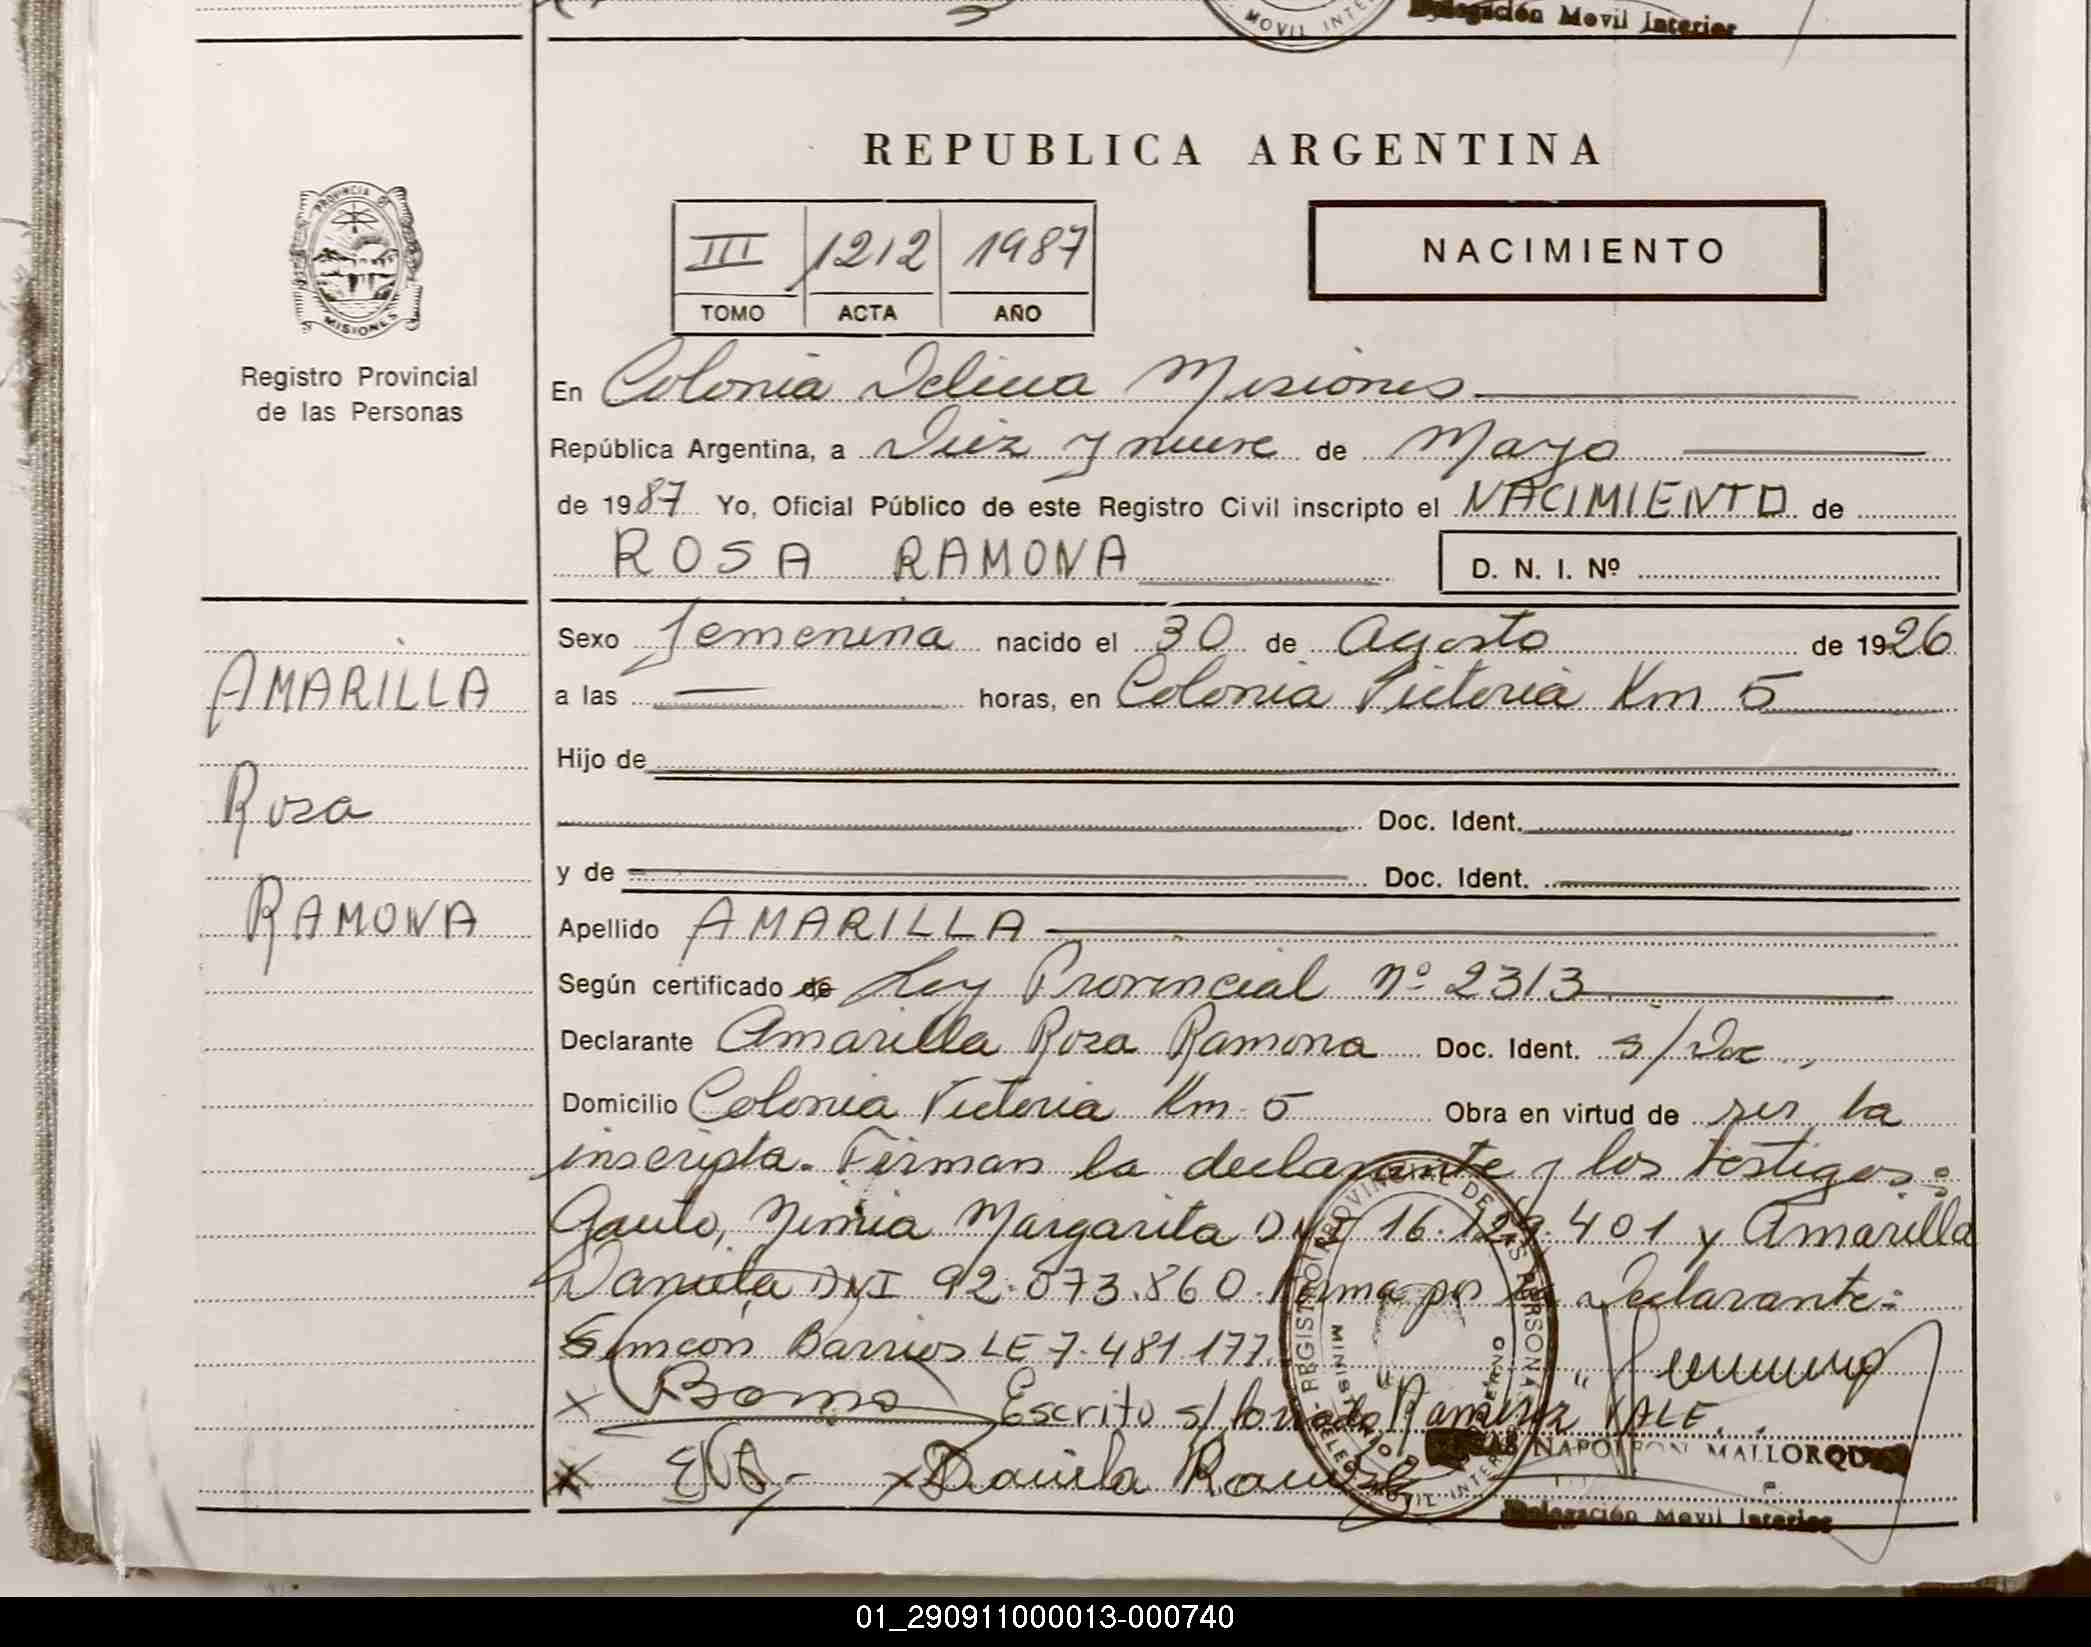 MOVIL INTE
Delegación Movil Interior
REPUBLICA ARGENTINA
PROVINCIA DE
MISIONES
Registro Provincial
de las Personas
III 1212 1987
TOMO ACTA AÑO
NACIMIENTO
En Colonia Delicia Misiones
República Argentina, a Diez y nueve de Mayo
de 1987 Yo, Oficial Público de este Registro Civil inscripto el NACIMIENTO de
ROSA RAMONA D. N. I. Nº
AMARILLA
Rosa
RAMONA
Sexo femenina nacido el 30 de Agosto de 1926
a las horas, en Colonia Victoria Km 5
Hijo de
Doc. Ident.
y de Doc. Ident.
Apellido AMARILLA
Según certificado de Ley Provincial Nº 2313
Declarante Amarilla Rosa Ramona Doc. Ident. s/Doc.,
Domicilio Colonia Victoria Km 5 Obra en virtud de ser la
inscripta. Firman la declarante y los testigos:
Gauto, Mirnia Margarita DNI 16.129.401 y Amarilla
Daniela DNI 92.073.860. Firma por la Declarante:
Simeón Barrios LE 7.481.177.
Escrito s/ borrado "Ramirez" VALE.
NAPOLEON MALLORQUIN
Daniela Ramirez
REGISTRO PROVINCIAL DE LAS PERSONAS
Delegación Movil Interior
01_290911000013-000740